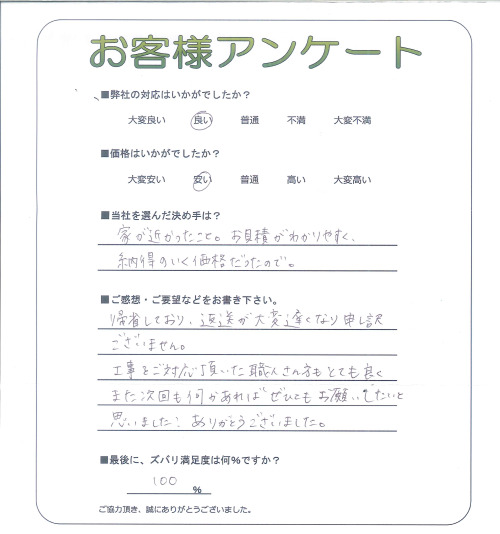 お客様アンケート
■弊社の対応はいかがでしたか？
大変良い 良い 普通 不満 大変不満
■価格はいかがでしたか？
大変安い 安い 普通 高い 大変高い
■当社を選んだ決め手は？
家が近かったこと。お見積がわかりやすく、
納得のいく価格だったので。
■ご感想・ご要望などをお書き下さい。
帰省しており、返送が大変遅くなり申し訳
ございません。
工事をご対応頂いた職人さん方もとても良く
また次回も何かあればぜひともお願いしたいと
思いました！ありがとうございました。
■最後に、ズバリ満足度は何％ですか？
100 ％
ご協力頂き、誠にありがとうございました。